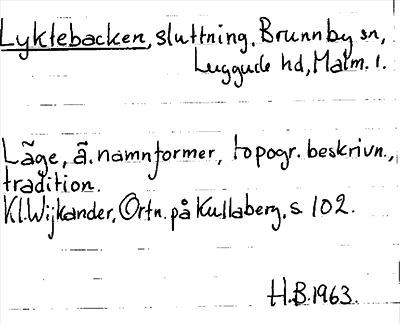 Lyktebacken, sluttning. Brunnby sn,
Luggude hd, Malm. l.
Läge, ä. namnformer, topogr. beskrivn.,
tradition.
Kl. Wijkander, Ortn. på Kullaberg, s. 102.
H.B. 1963.